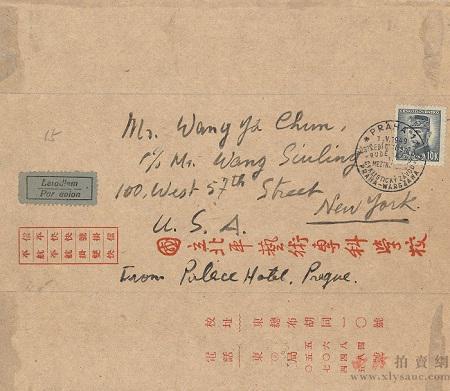 Mr. Wang Ya Chun,
c/o Mr. Wang Siuling
100, West 57th Street
New York.
U. S. A.
國立北平藝術專科學校
From Palace Hotel, Prague.
Letadlem
Par avion
15
PRAHA 7
1.V.1949
PRAHA-WARSZAWA
10K
校址 東總布胡同一〇號
電話 東局
拍賣網
www.xlysauc.com